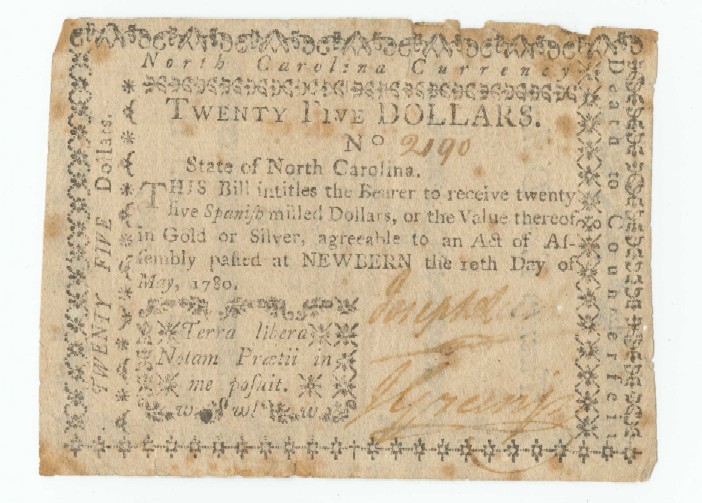 North Carolina Currency
TWENTY FIVE DOLLARS.
No 2190
State of North Carolina.
THIS Bill intitles the Bearer to receive twenty
five Spanish milled Dollars, or the Value thereof
in Gold or Silver, agreeable to an Act of As-
sembly passed at NEWBERN the 10th Day of
May, 1780.
Terra libera
Notam Prætii in
me posuit.
Joseph
J Green
TWENTY FIVE Dollars.
Death to Counterfeit